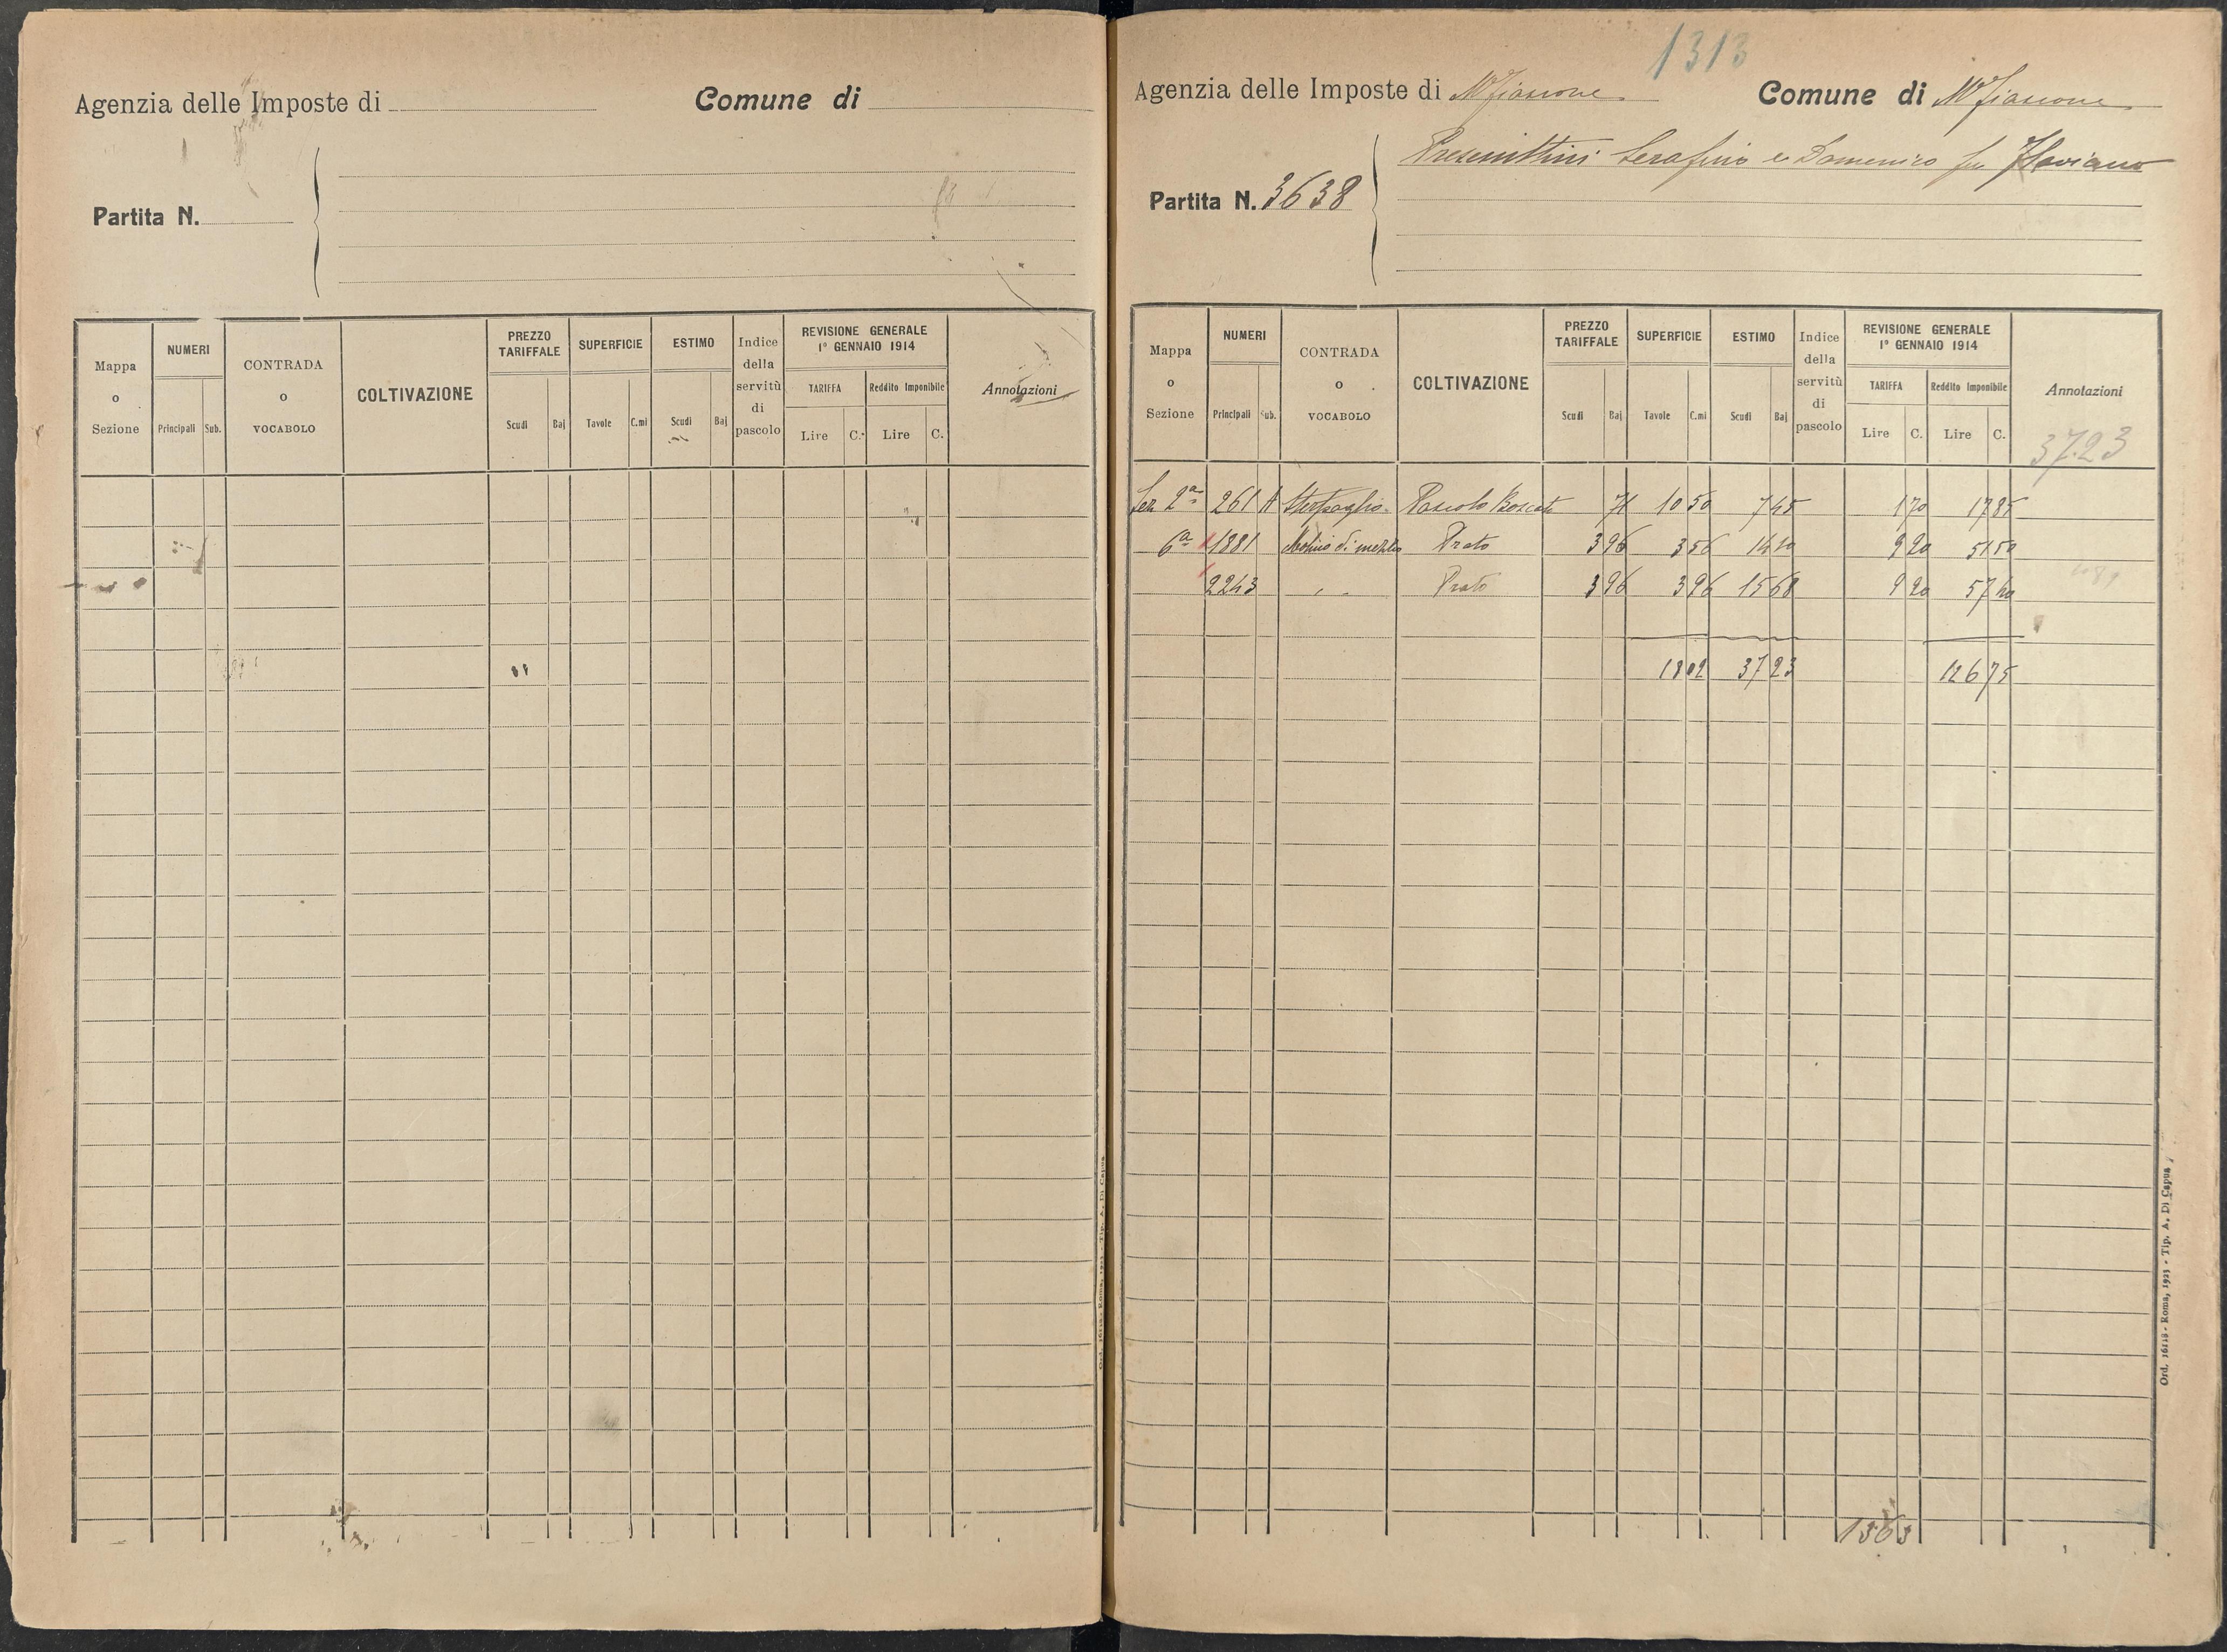 Agenzia delle Imposte di Comune di
Partita N.
Mappa o Sezione NUMERI Principali Sub. CONTRADA o VOCABOLO COLTIVAZIONE PREZZO TARIFFALE Scudi Baj SUPERFICIE Tavole C.mi ESTIMO Scudi Baj Indice della servitù di pascolo REVISIONE GENERALE 1° GENNAIO 1914 TARIFFA Lire C. Reddito Imponibile Lire C. Annotazioni
1313
Agenzia delle Imposte di Mfiascone Comune di Mfiascone
Serafino e Domenico fu Flaviano
Partita N. 3638
Mappa o Sezione NUMERI Principali Sub. CONTRADA o VOCABOLO COLTIVAZIONE PREZZO TARIFFALE Scudi Baj SUPERFICIE Tavole C.mi ESTIMO Scudi Baj Indice della servitù di pascolo REVISIONE GENERALE 1° GENNAIO 1914 TARIFFA Lire C. Reddito Imponibile Lire C. Annotazioni
3723
Sez 2a 261 A Sterpaglio Pascolo Boscato 71 10 50 7 45 1 70 17 85
6a 1881 Molino di mezzo Prato 3 96 3 56 14 10 9 20 51 50
2243 " " Prato 3 96 3 96 15 68 9 20 57 40
18 02 37 23 126 75
1363
Ord. 16118 - Roma, 1923 - Tip. A. Di Capua